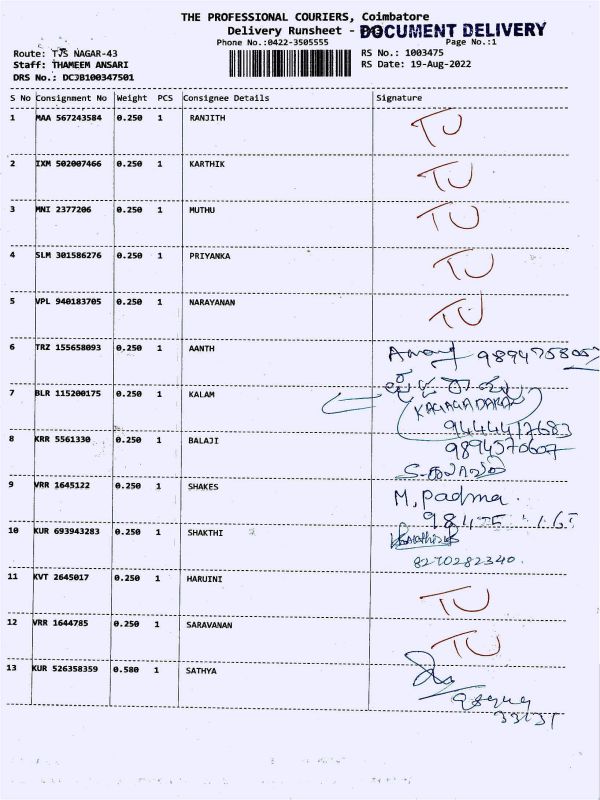 THE PROFESSIONAL COURIERS, Coimbatore
Delivery Runsheet - DOCUMENT DELIVERY
Phone No.:0422-3505555 Page No.:1
Route: TJS NAGAR-43 RS No.: 1003475
Staff: THAMEEM ANSARI RS Date: 19-Aug-2022
DRS No.: DCJB100347501
S No Consignment No Weight PCS Consignee Details Signature
1 MAA 567243584 0.250 1 RANJITH TU
2 IXM 502007466 0.250 1 KARTHIK TU
3 MNI 2377206 0.250 1 MUTHU TU
4 SLM 301586276 0.250 1 PRIYANKA TU
5 VPL 940183705 0.250 1 NARAYANAN TU
6 TRZ 155658093 0.250 1 AANTH 9894758057
7 BLR 115200175 0.250 1 KALAM
9444417683
8 KRR 5561330 0.250 1 BALAJI 9894570607
9 VRR 1645122 0.250 1 SHAKES M. Padma.
10 KUR 693943283 0.250 1 SHAKTHI
8270282340.
11 KVT 2645017 0.250 1 HARUINI TU
12 VRR 1644785 0.250 1 SARAVANAN TU
13 KUR 526358359 0.580 1 SATHYA
33131